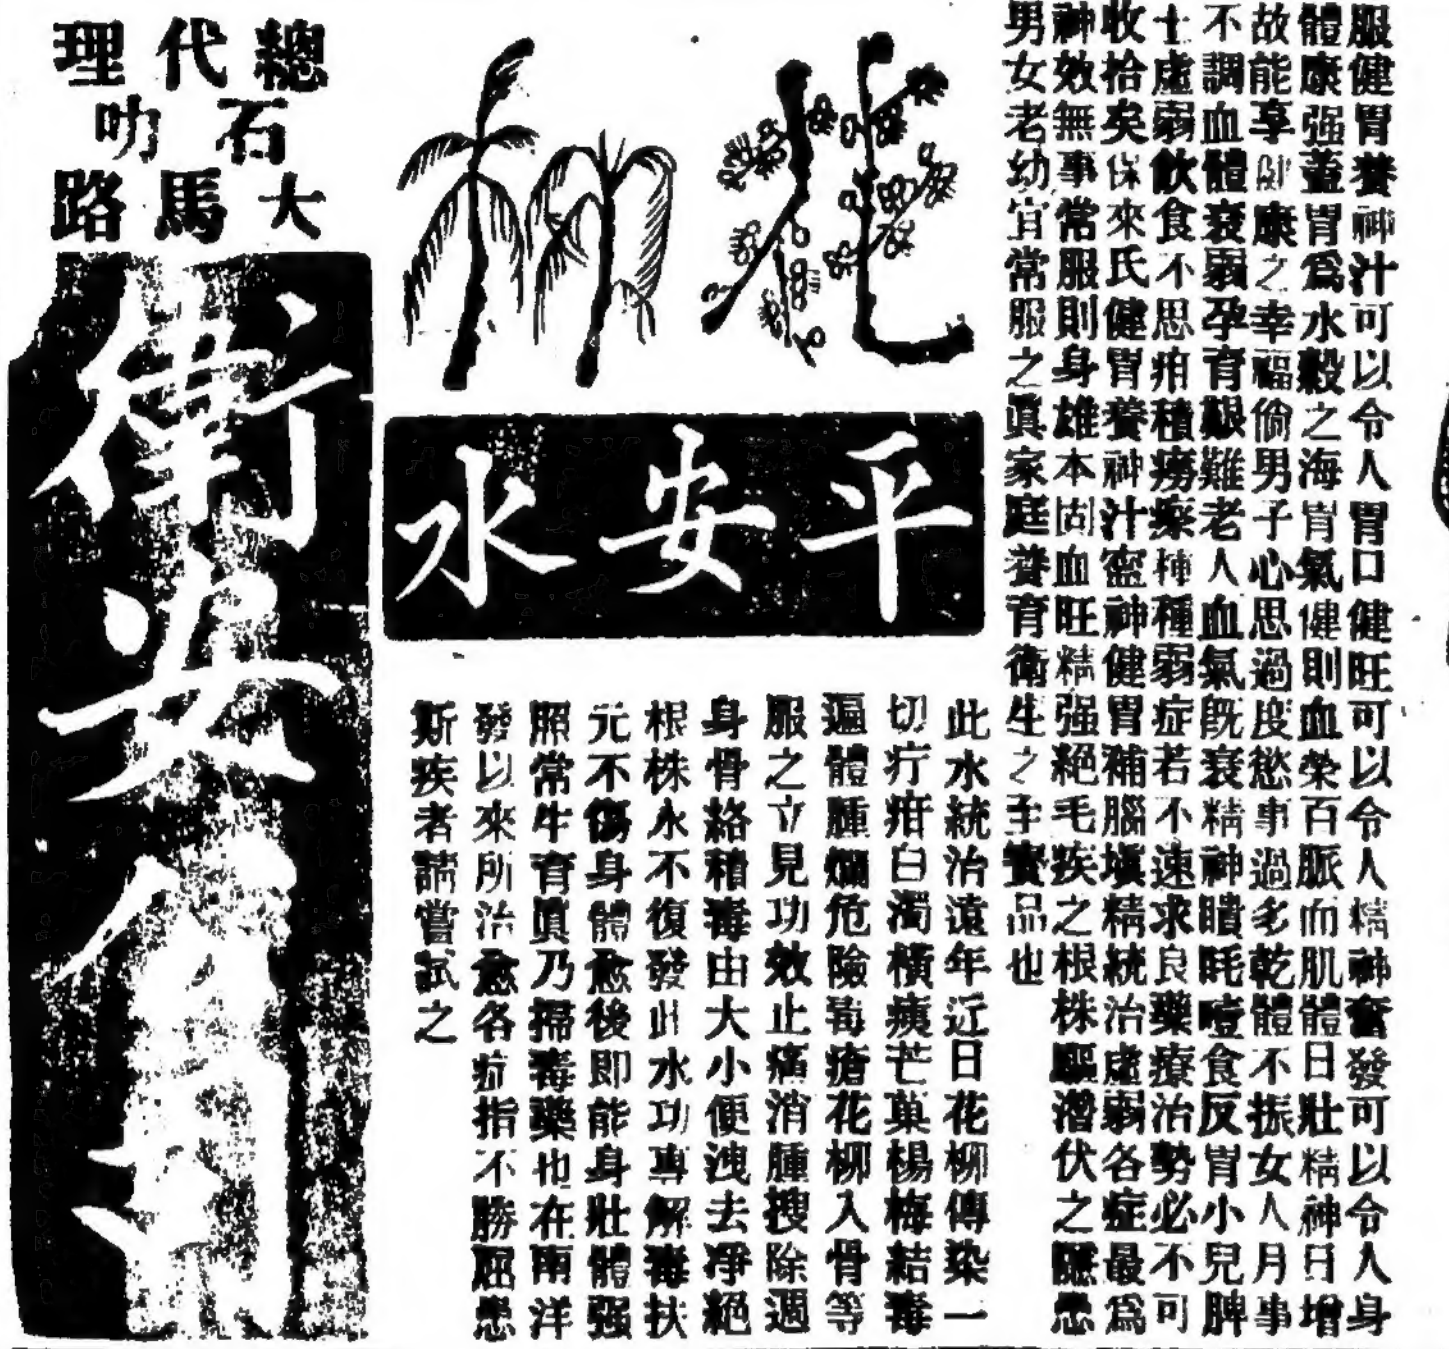 服健胃養神汁可以令人胃口健旺可以令人精神奮發可以令人身
體康强蓋胃爲水穀之海胃氣健則血榮百脈而肌體日壯精神日增
故能享健康之幸福倘男子心思過度慾事過多乾體不振女人月事
不調血體衰弱孕育艱難老人血氣既衰精神瞶眊噎食反胃小兒脾
士虛弱飲食不思疳積癆瘵種種弱症若不速求良藥療治勢必不可
收拾矣保來氏健胃養神汁寧神健胃補腦塡精統治虛弱各症最爲
神效無事常服則身雄本固血旺精强絕毛疾之根株驅潛伏之
男女老幼宜常服之眞家庭養育衛生之寳品也
花柳
平安水
此水統治遠年近日花柳傳染一
切疔疳白濁橫痃芒菓楊梅結毒
遍體腫爛危險毒瘡花柳入骨等
服之立見功效止痛消腫搜除週
身骨絡積毒由大小便洩去凈絕
根株永不復發此水功專解毒扶
元不傷身體愈後即能身壯體强
照常生育眞乃掃毒藥也在南洋
發以來所治愈各症指不勝屈患
斯疾者請嘗試之
總代理
石叻
大馬路
衛安公司